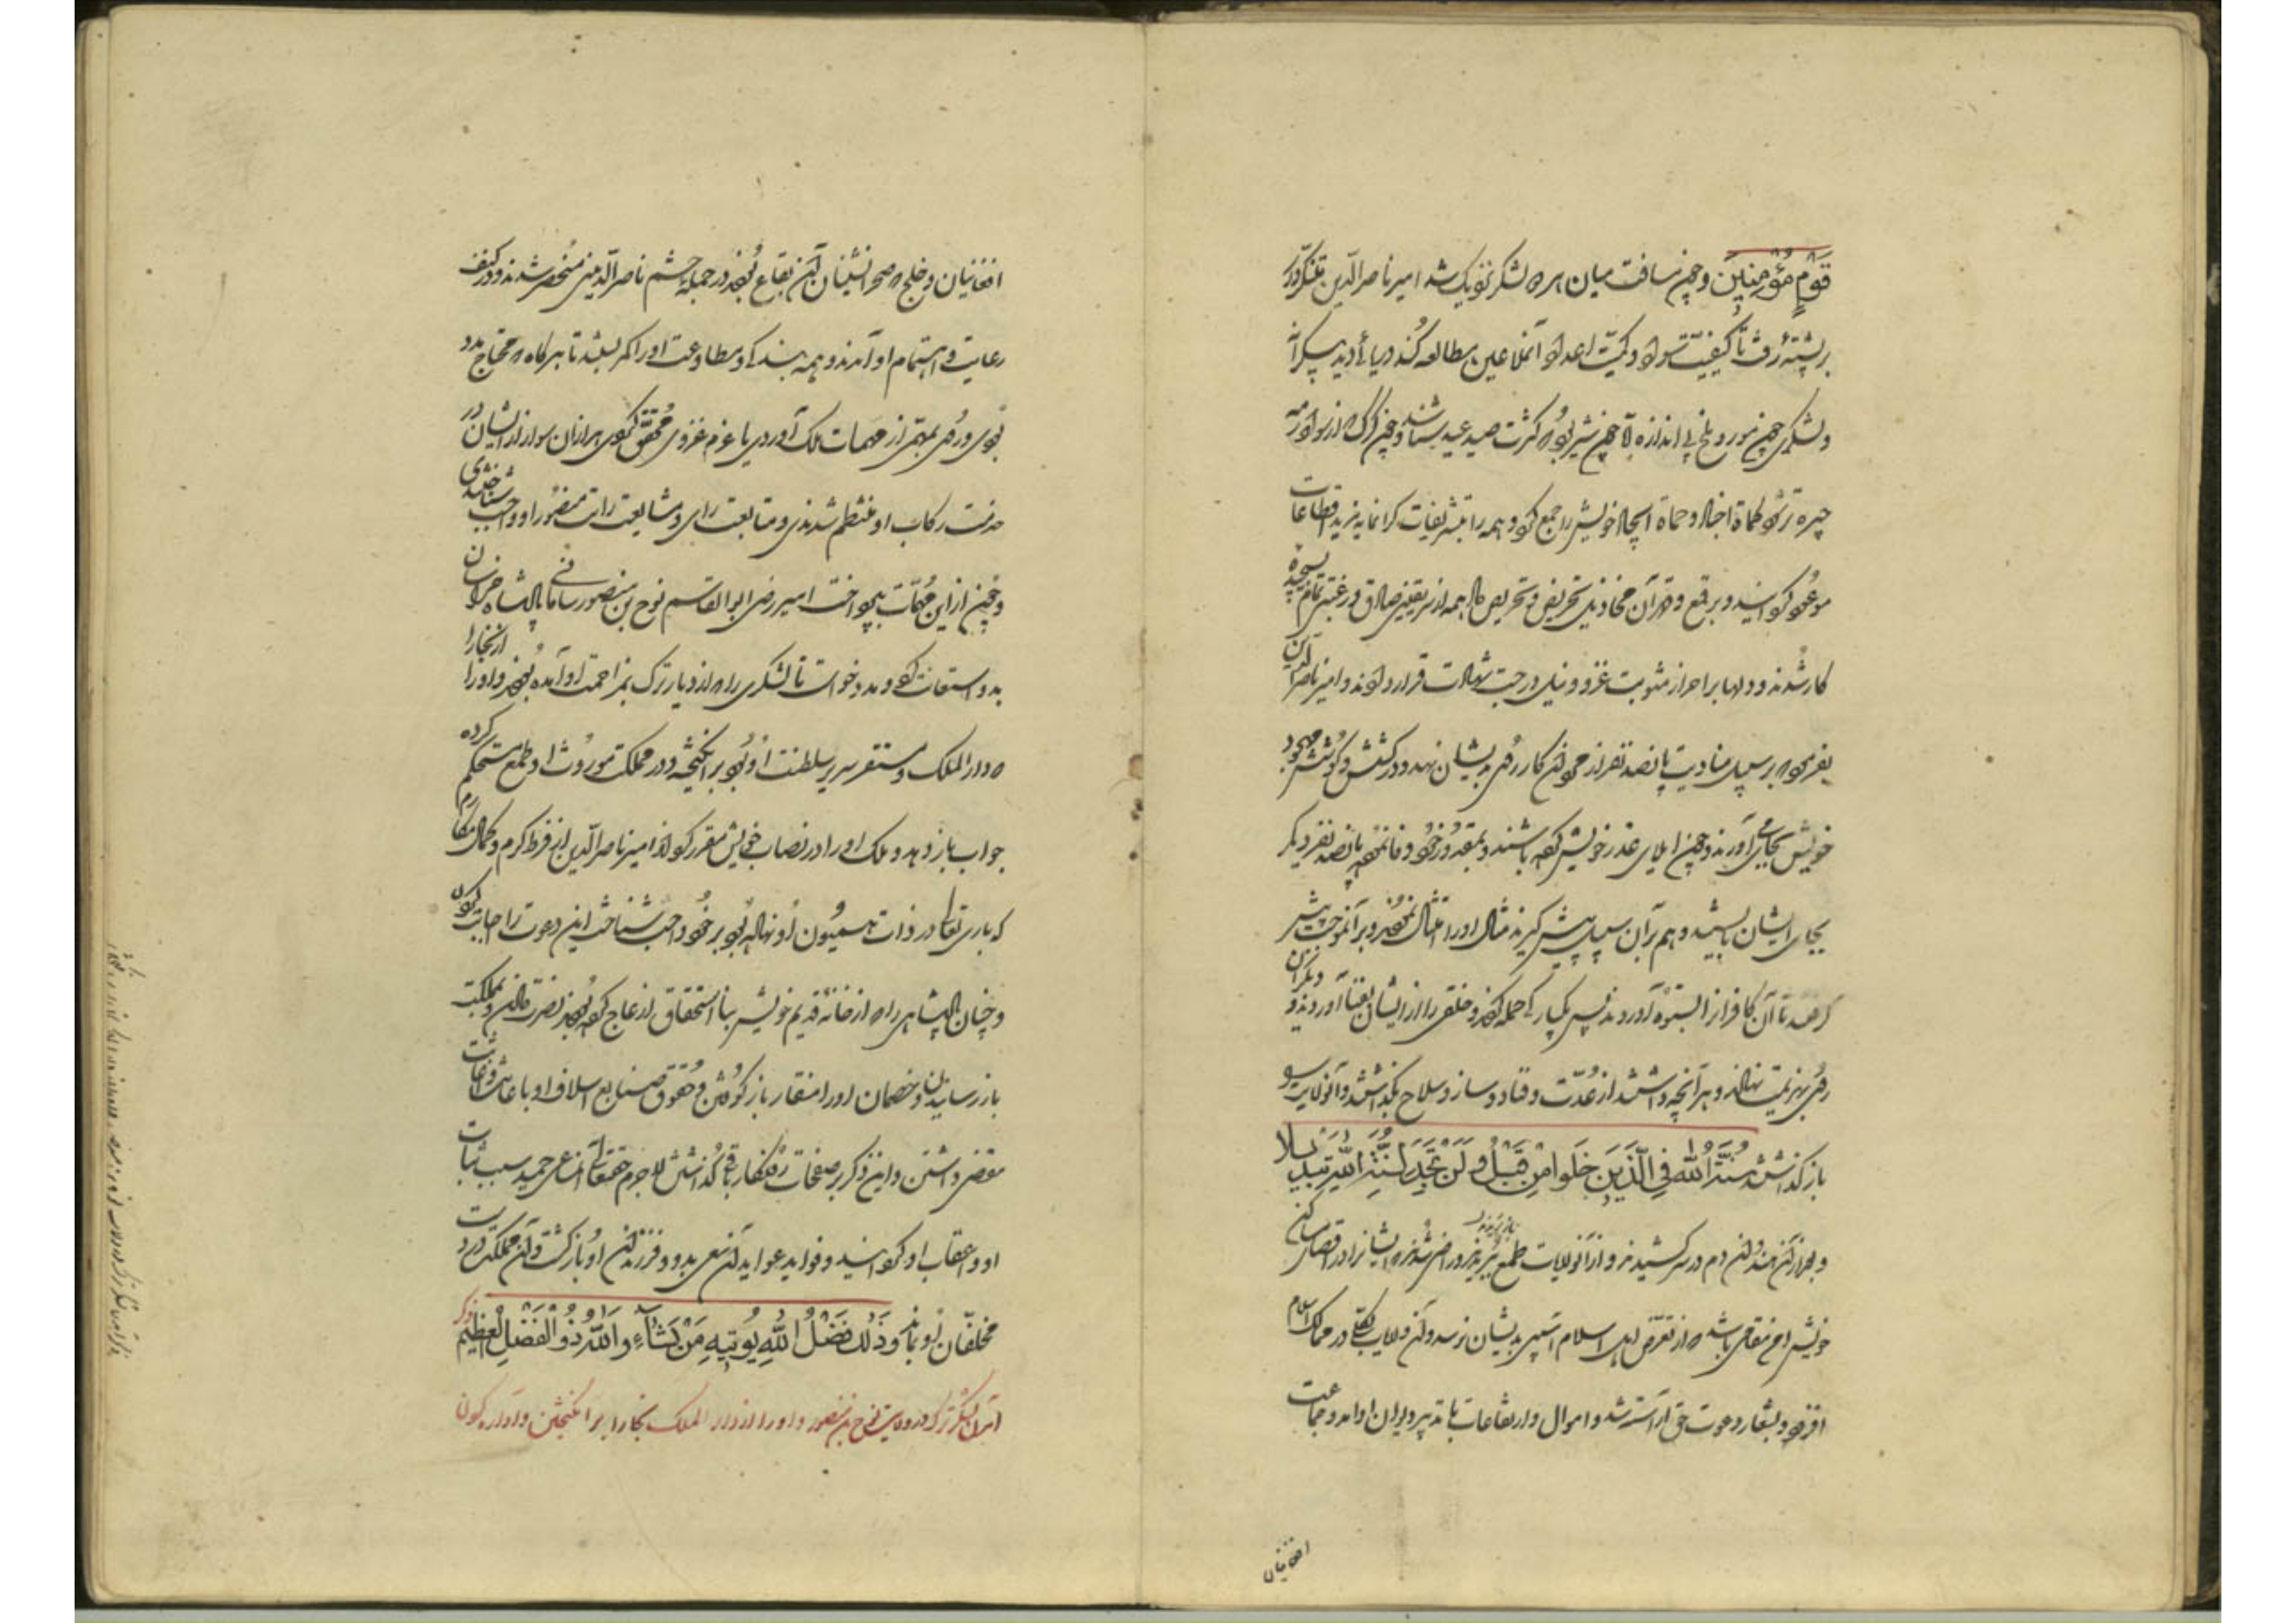 قَوْمٍ مُؤْمِنِینَ وچون مسافت میان هر دو لشکر نزدیک شد امیر ناصرالدین سبکتکین
بر پشتهٔ رفت تا کیفیت سواد و کمیت اعداد آن ملاعین مطالعه کند دریائی دید بیکرانه
ولشکری چون مور و ملخ بی اندازه الا چون شیری بود که بکثرت صید عید سازد و چون گرگ که از سواد رمه
چیره تر شود کماة اجناد و حماة انجاد خویش را جمع کرد و همه را بتشریفات گرانمایه و مزید اقطاعات
موعود گردانید و بر قمع و قهر آن مخاذیل تحریض و تحریص داد همه از سر یقینی صادق و رغبتی تمام بسیجیده
کار شدند و دلها بر احراز مثوبت غزو و نیل درجت شهادت قرار دادند و امیر ناصرالدین
بفرمود که بر سبیل مناوبت پانصد نفر از حمولهٔ کار روی بدیشان نهند و در کشش و کوشش مجهود
خویش بجای می آورند و چون ابلای عذر خویش کرده باشند و بمقدور خود وفا نموده پانصد نفر دیگر
بجای ایشان بایستند و هم بر آن سبیل پیش گیرند مثال او را امتثال نمودند و بر آنموجب پیش
گرفتند تا آن کافران را بستوه آوردند پس بیکبارگی حمله کردند و خلقی را از ایشان بفنا آوردند و دیگران
روی بهزیمت نهادند و هر آنچه داشتند از عُدّت و عتاد و ساز و سلاح بگذاشتند و آنولایت بدو
باز گذاشتند سُنَّةَ اللّٰهِ فِی الَّذِینَ خَلَوْا مِنْ قَبْلُ وَلَنْ تَجِدَ لِسُنَّةِ اللّٰهِ تَبْدِیلًا
و بعد از آن هندوان دم در سر کشیدند و از آنولایات طمع ببریدند و راضی شدند که ایشانرا در اقصای مساکن
خویش رخ مقامی باشد که از تعرض اهل اسلام آسیبی بدیشان نرسد و آن ولایات بکلی در ممالک اسلام
افزود و بشعار دعوت حق آراسته شد و اموال و ارتفاعات با تدبیر دیوان او آمد و جماعت
افغانیان
افغانیان و خلج که صحرا نشینان آن بقاع بودند در جمله حشم ناصرالدین منحصر شدند و در کنف
رعایت و اهتمام او آمدند و همه بندگی و مطاوعت او را کمر ببستند تا هر گاه که محتاج مدد
بودی و روی بمهمی از مهمات ملک آوردی یا عزم غزوی محقق کردی هزاران سوار از ایشان در
خدمت رکاب او منتظم شدندی و متابعت رای و مشایعت رایت منصور او واجب شناختندی
و چون از این مهمات بپرداخت امیر رضی ابوالقاسم نوح بن منصور سامانی پادشاه خراسان
بدو استغاثت کرد و مدد خواست تا لشکری را که از دیار ترک بمزاحمت او آمده بودند و او را از بخارا
که دار الملک و مستقر سریر سلطنت او بود بر انگیخته و در مملکت موروث او طمع مستحکم کرده
جواب باز دهد و ملک او را در نصاب خویش مقرر گرداند امیر ناصرالدین از فرط کرم و کمال مکارم
که باری تعالی در ذات همیون او نهاده بود بر خود واجب شناخت این دعوت را اجابت کردن
و چنان پادشاهی را که از خانهٔ قدیم خویش بنا استحقاق ازعاج کرده بودند نصرت دادن و بمملکت
باز رسانیدن و خصمان او را منقار باز کوفتن و حقوق صنایع اسلاف او باعانت و اغاثت
مقضی داشتن و این ذکر بر صفحات روزگار باقی گذاشتن لاجرم حقتعالی آن مساعی حمید سبب ثبات
او و اعقاب او گردانید و فواید عواید آن سعی بدو و فرزندان او باز گشت و آن مملکت در دست
مخلفان او بماند وَذٰلِكَ فَضْلُ اللّٰهِ یُؤْتِیهِ مَنْ یَشَاءُ وَاللّٰهُ ذُو الْفَضْلِ الْعَظِیمِ ذکر
آمدن لشکر ترک در ولایت نوح بن منصور و او را از دار الملک بخارا بر انگیختن و آواره کردن